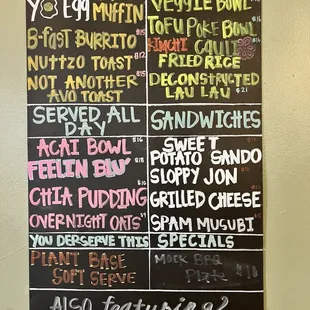 EGG MUFFIN
B-FAST BURRITO $15
NUTTZO TOAST $12
NOT ANOTHER $15
AVO TOAST
VEGGIE BOWL
TOFU POKE BOWL $16
KIMCHI CAULI
FRIED RICE
DECONSTRUCTED
LAU LAU $21
SERVED ALL
DAY
ACAI BOWL $16
FEELIN BLU' $18
CHIA PUDDING $10
OVERNIGHT OATS $9
SANDWICHES
SWEET
POTATO SANDO
SLOPPY JON
GRILLED CHEESE
SPAM MUSUBI
YOU DERSERVE THIS
PLANT BASE
SOFT SERVE
SPECIALS
MOCK BBQ
PLATE
ALSO featuring?